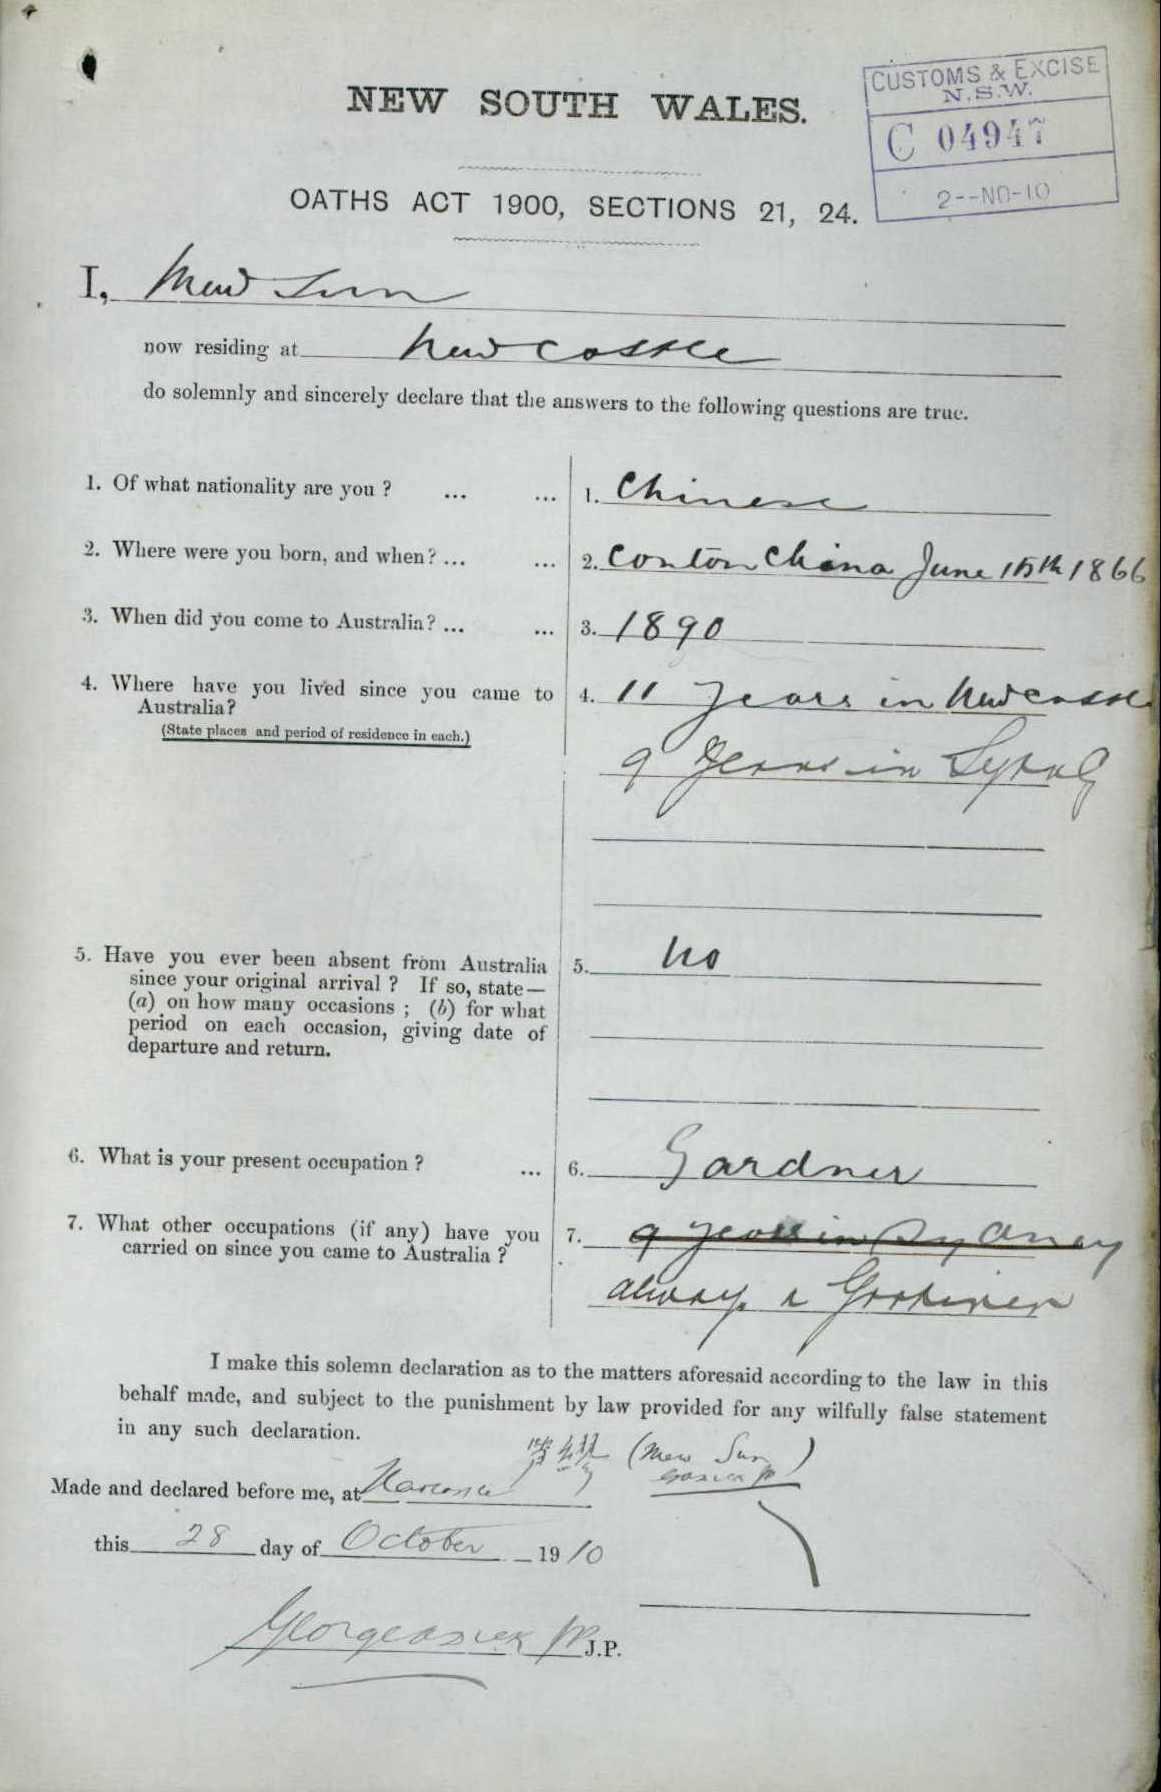 CUSTOMS & EXCISE
N.S.W.
C 04947
2--NO-10
NEW SOUTH WALES.
OATHS ACT 1900, SECTIONS 21, 24.
I, Mew Sun
now residing at Newcastle
do solemnly and sincerely declare that the answers to the following questions are true.
1. Of what nationality are you ? ... ... 1. Chinese
2. Where were you born, and when ? ... ... 2. Conton China June 15th 1866
3. When did you come to Australia ? ... ... 3. 1890
4. Where have you lived since you came to 4. 11 years in Newcastle
Australia?
(State places and period of residence in each.)
9 years in
5. Have you ever been absent from Australia 5. No
since your original arrival ? If so, state—
(a) on how many occasions ; (b) for what
period on each occasion, giving date of
departure and return.
6. What is your present occupation ? ... 6. Gardner
7. What other occupations (if any) have you 7. 9 years in Sydney
carried on since you came to Australia ?
always a
I make this solemn declaration as to the matters aforesaid according to the law in this
behalf made, and subject to the punishment by law provided for any wilfully false statement
in any such declaration.
(Mew Sun)
Made and declared before me, at
this 28 day of October 1910
J.P.